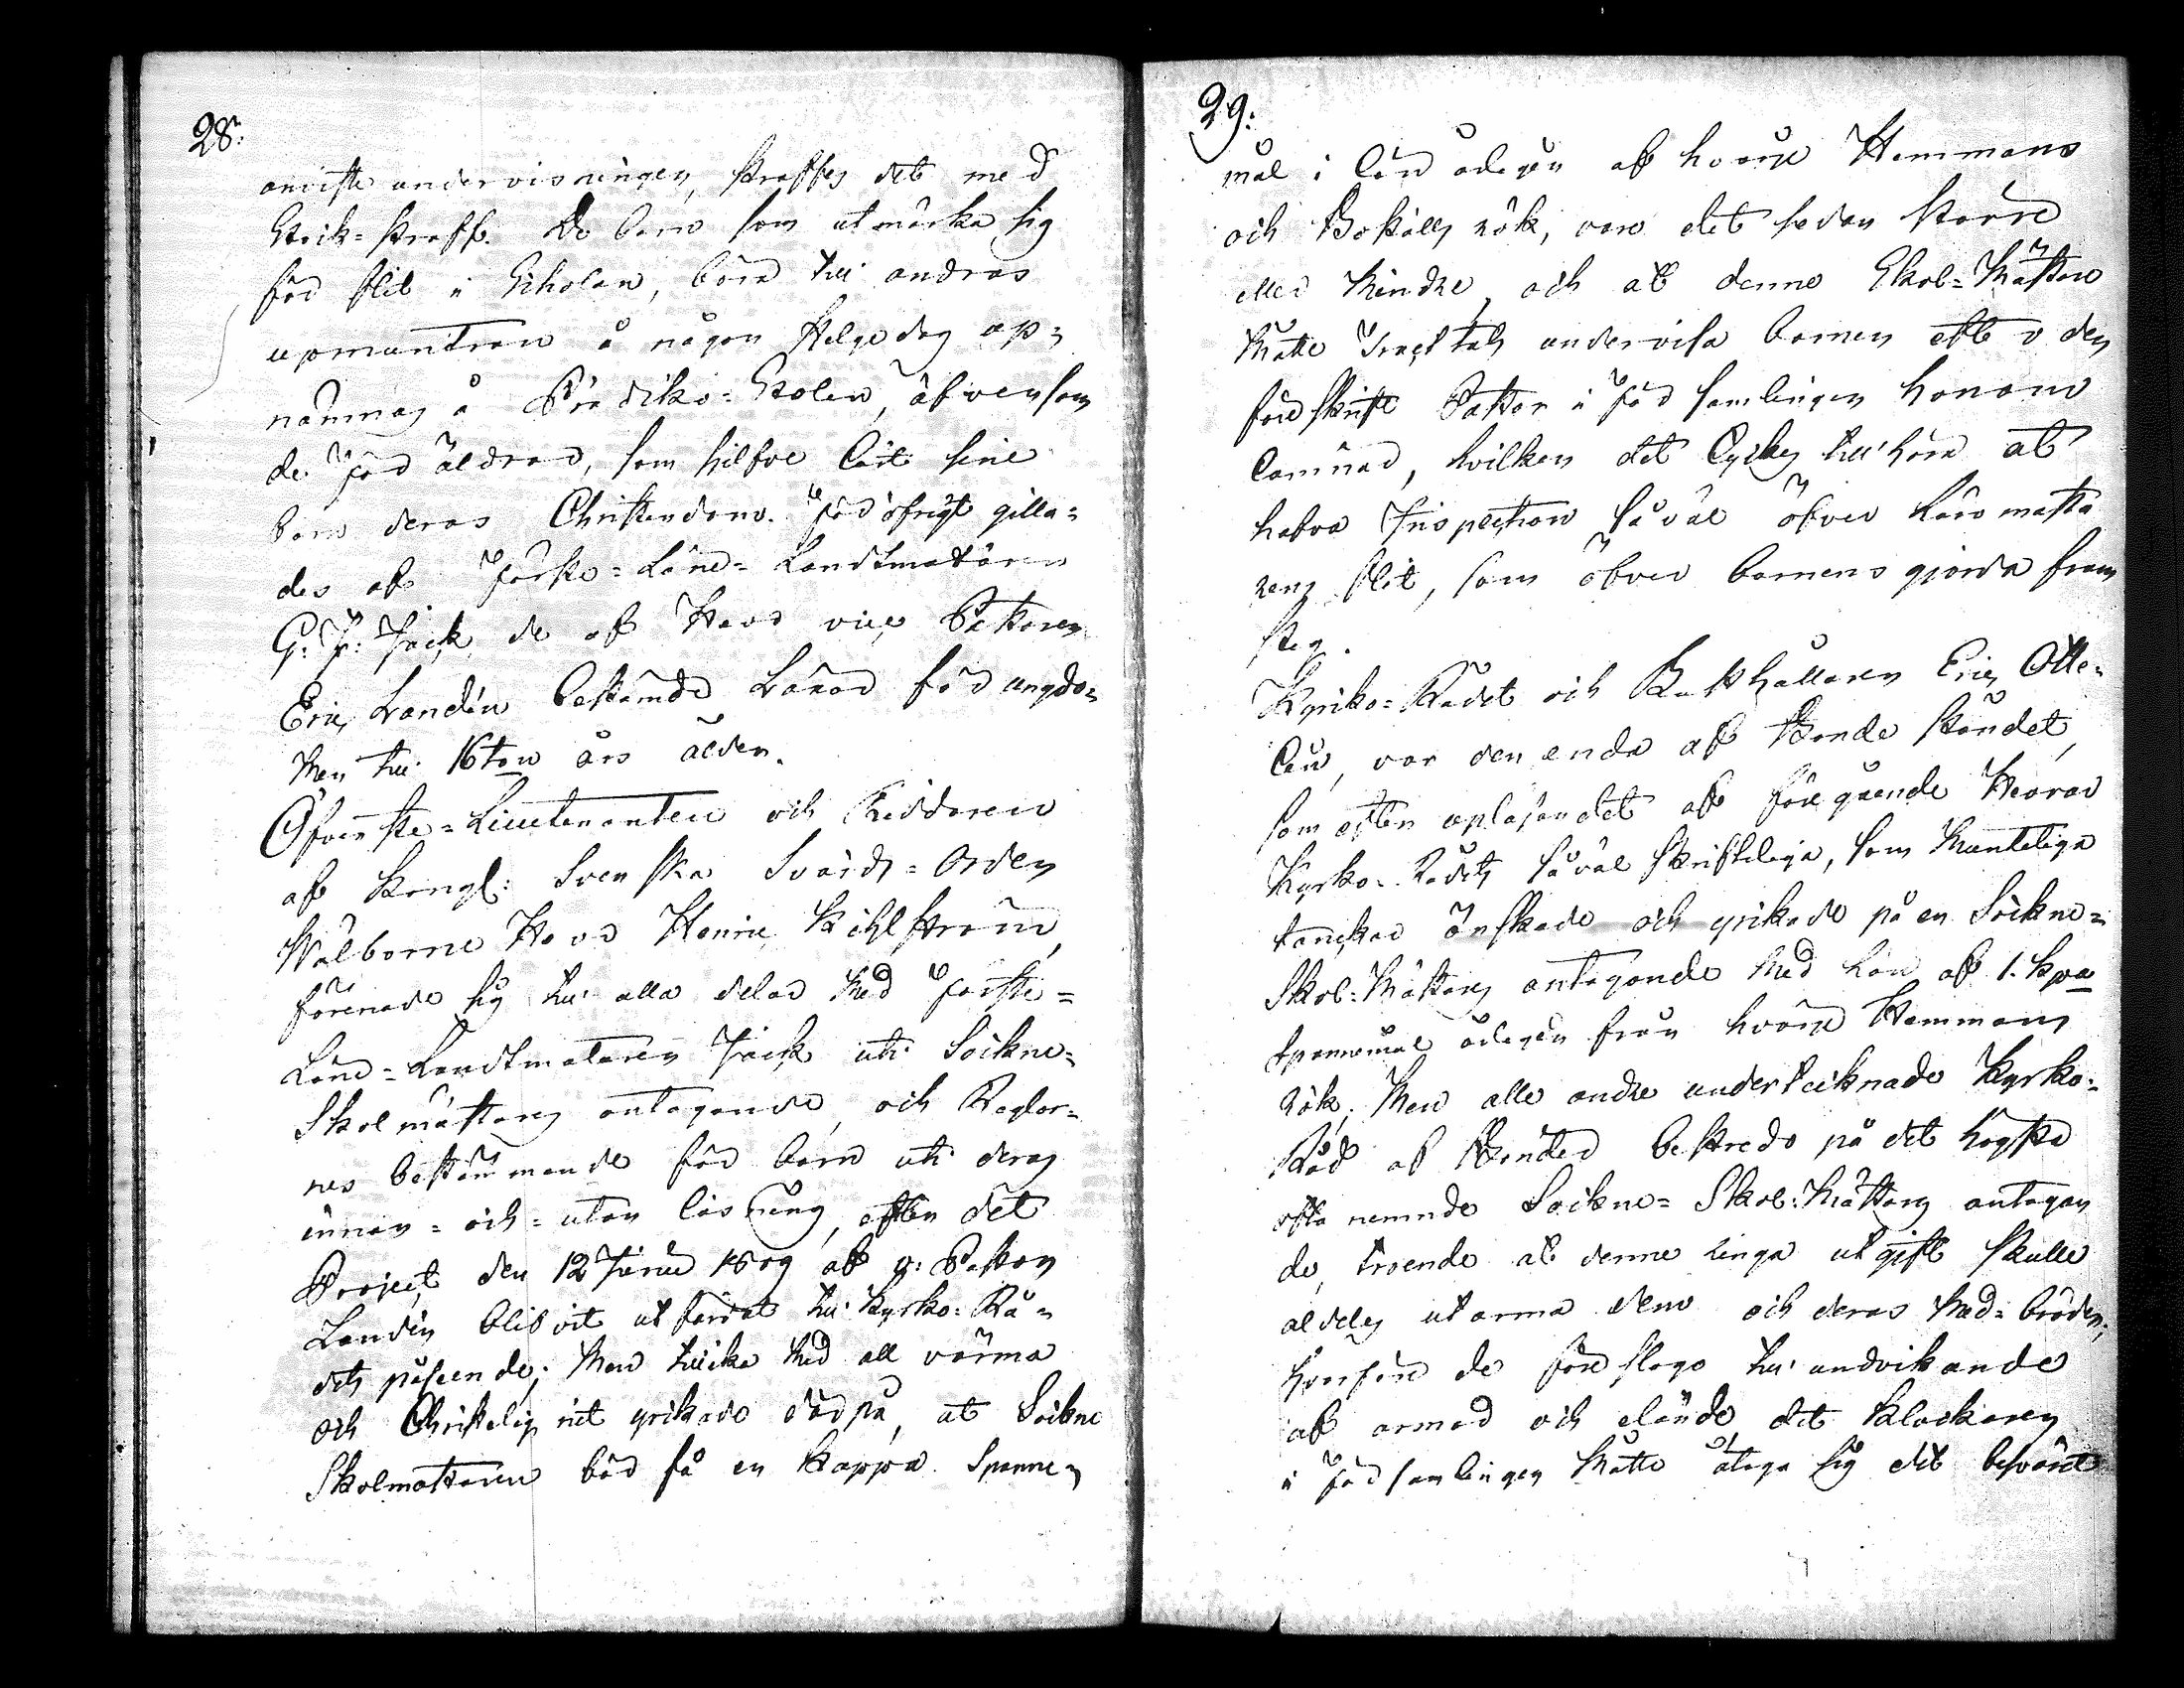 28:
omiste undervisningen, straffes det med
Skol=straff. De barn som utmärka sig
för flit i Scholan, böra till andras
upmuntran å någon Helgedag op=
nämnas å Prediko=Stolen, äfvensom
de Föräldrar, som hilfve lärt sine
barn deras Christendom. Föröfrigt gilla=
des af Förste=Land=Landtmätaren
G: F: Fäck de af Herr vice Pastoren
Eric Landén bestämde Läror för ungdo=
men till 16ton års ålder.
Öfverste=Lieutenanten och Riddaren
af Kongl: Svenska Svärds=Orden
Wälborne Herr Henric Kihlström,
förenade sig till alla delar med Förste=
Land=Landtmätaren Fäck uti Sockne=
Skolmästarens antagande, och Regler=
nes bestämmande för barn uti deras
innan=och=utan läsning, efter det
Project den 12 Junii 1809 af v: Pastor
Landén blifvit utfärdat till Kyrko=Rå=
dets påseende; Men tillika med all värma
och Christelig nit yrkade därpå, at Sockne
Skolmästaren bör få en Kappa Spanne=
29:
mål i lön årligen af hvarje Hemmans
och Boställs rök, vare det sedan större
eller mindre, och at denne Skol=Mästare
måtte Tractals undervisa barnen efter den
föreskrift Pastor i Församlingen honom
lämnar, hvilken det äfven tillhörer at
hafva Inspection såväl öfver Läromästa
rens flit, som öfver barnens gjorda fram
steg.
Kyrko=Rådet och Rusthållaren Eric Otte=
lin, var den enda af Bonde ståndet,
som efter uplösandet af föregående Herrar
Kyrko=Råds såväl skrifteliga, som munteliga
tanckar önskade och yrkade på en Sockne=
Skol=Mästares antagande med Lön af 1. kpa
spannemål årligen från hvarje Hemmans
rök; Men alle andre undertecknade Kyrko=
Råd af Bönder bestredo på det högsta
ofta nemnde Sockne=Skol:Mästares antagan
de, troende at denne ringa utgift skulle
aldeles utarma dem och deras Med=bröder,
hvarföre de föreslogo till undvikande
af armod och elände, at Klockaren
i Församlingen måtte åtaga sig det besväret